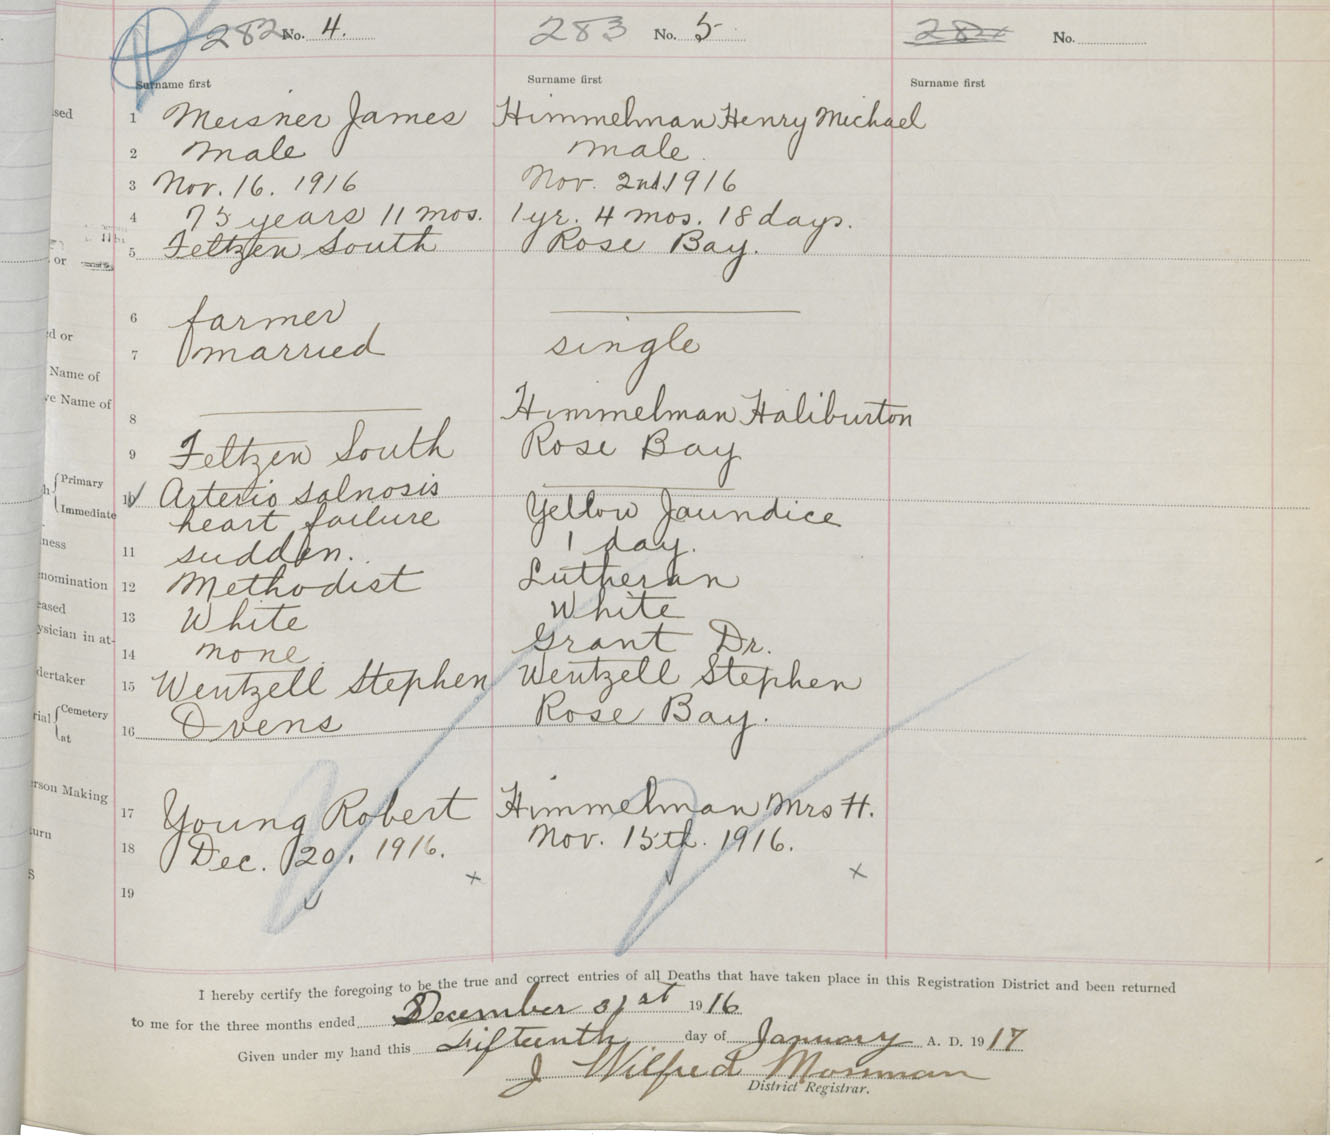 282 No. 4.
283 No. 5
284 No.
Surname first
Surname first
Surname first
sed
1 Meisner James
Himmelman Henry Michael
2 male
male.
3 Nov. 16. 1916
Nov. 2nd. 1916
4 75 years 11 mos.
1 yr. 4 mos. 18 days.
or
5 Feltzen South
Rose Bay.
6 farmer
ed or
7 married
single
Name of
ve Name of
8
Himmelman Haliburton
9 Feltzen South
Rose Bay
h Primary
10 Arterio salnosis
Immediate
heart failure
Yellow Jaundice
ness
11 sudden.
1 day.
nomination
12 Methodist
Lutheran
eased
13 White
White
ysician in at-
14 none.
Grant Dr.
dertaker
15 Wentzell Stephen
Wentzell Stephen
rial Cemetery
at
16 Ovens
Rose Bay.
erson Making
17 Young Robert
Himmelman Mrs H.
turn
18 Dec. 20, 1916.
Nov. 15th. 1916.
s
19
I hereby certify the foregoing to be the true and correct entries of all Deaths that have taken place in this Registration District and been returned
to me for the three months ended December 31st 1916
Given under my hand this Fifteenth day of January A. D. 1917
J Wilfred Mosman
District Registrar.